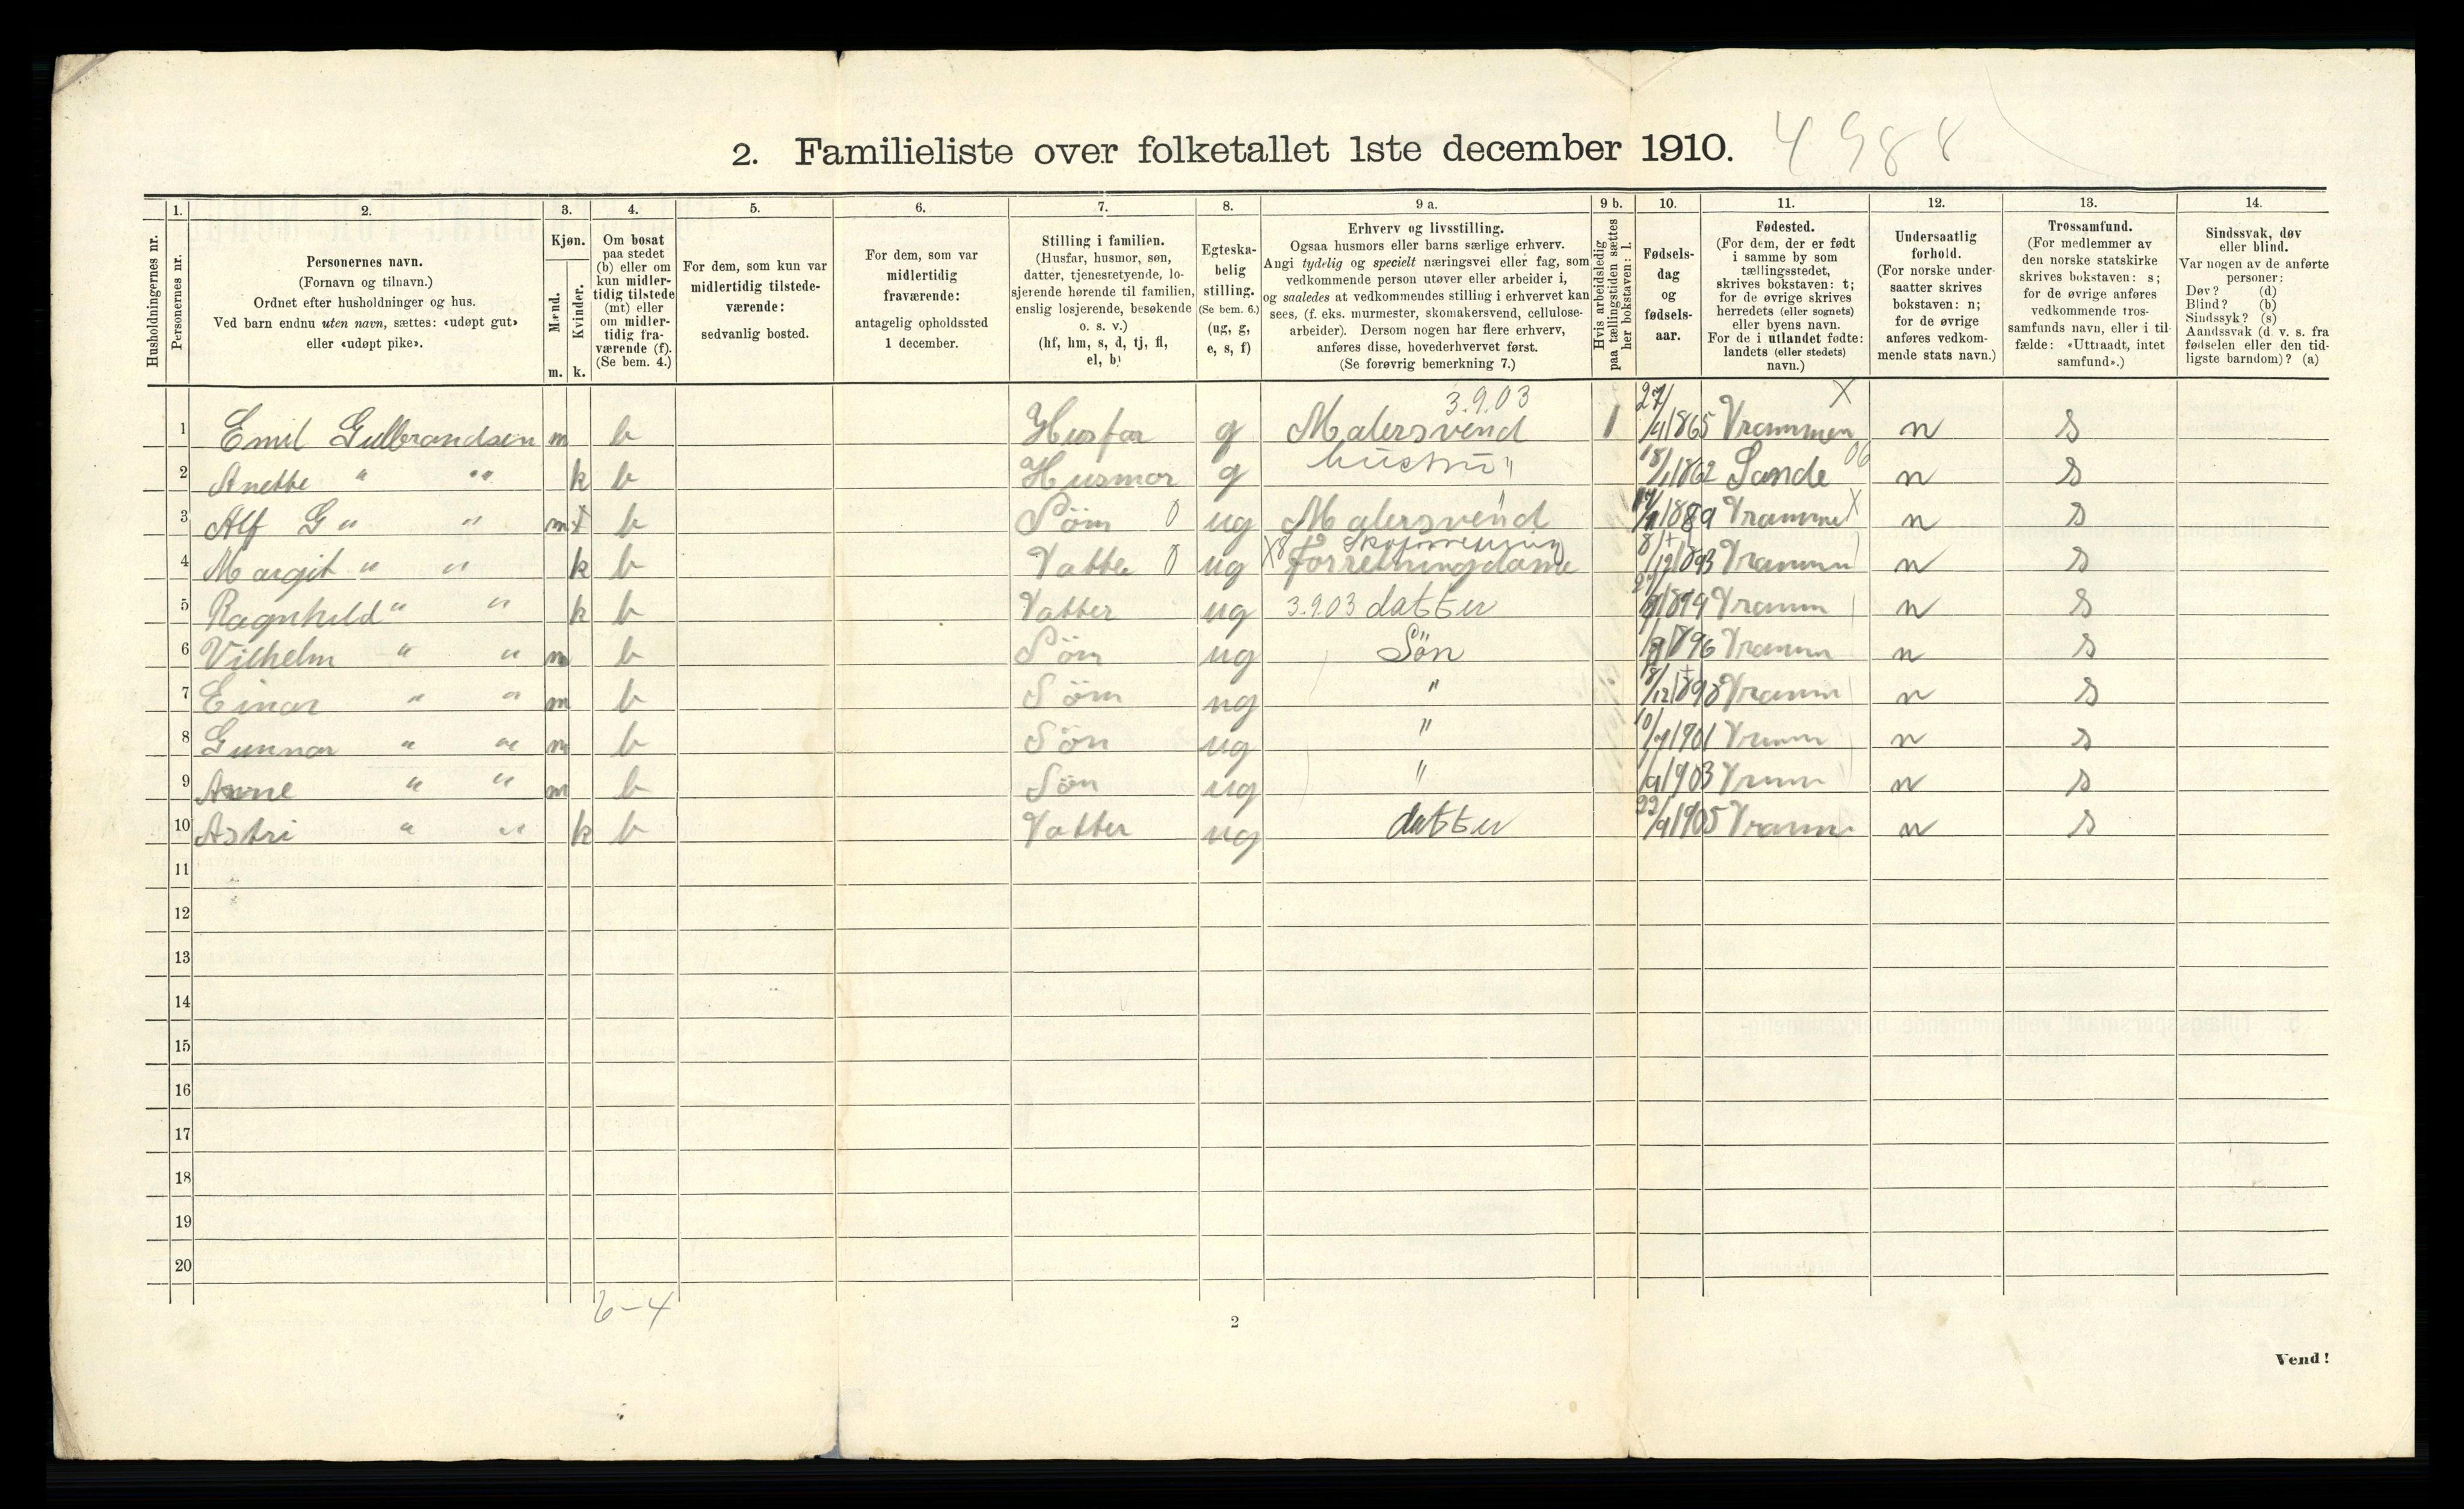 2. Familieliste over folketallet 1ste december 1910. 4988
Husholdningernes nr.
1.
Personernes nr.
2.
Personernes navn.
(Fornavn og tilnavn.)
Ordnet efter husholdninger og hus.
Ved barn endnu uten navn, sættes: «udøpt gut»
eller «udøpt pike».
3.
Kjøn.
Mænd.
Kvinder.
m. k.
4.
Om bosat
paa stedet
(b) eller om
kun midler-
tidig tilstede
(mt) eller
om midler-
tidig fra-
værende (f).
(Se bem. 4.)
5.
For dem, som kun var
midlertidig tilstede-
værende:
sedvanlig bosted.
6.
For dem, som var
midlertidig
fraværende:
antagelig opholdssted
1 december.
7.
Stilling i familien.
(Husfar, husmor, søn,
datter, tjenestetyende, lo-
sjerende hørende til familien,
enslig losjerende, besøkende
o. s. v.)
(hf, hm, s, d, tj, fl,
el, b)
8.
Egteska-
belig
stilling.
(Se bem. 6.)
(ug, g,
e, s, f)
9 a.
Erhverv og livsstilling.
Ogsaa husmors eller barns særlige erhverv.
Angi tydelig og specielt næringsvei eller fag, som
vedkommende person utøver eller arbeider i,
og saaledes at vedkommendes stilling i erhvervet kan
sees, (f. eks. murmester, skomakersvend, cellulose-
arbeider). Dersom nogen har flere erhverv,
anføres disse, hovederhvervet først.
(Se forøvrig bemerkning 7.)
9 b.
Hvis arbeidsledig
paa tællingstiden sættes
her bokstaven: l.
10.
Fødsels-
dag
og
fødsels-
aar.
11.
Fødested.
(For dem, der er født
i samme by som
tællingsstedet,
skrives bokstaven: t;
for de øvrige skrives
herredets (eller sognets)
eller byens navn.
For de i utlandet fødte:
landets (eller stedets)
navn.)
12.
Undersaatlig
forhold.
(For norske under-
saatter skrives
bokstaven: n;
for de øvrige
anføres vedkom-
mende stats navn.)
13.
Trossamfund.
(For medlemmer av
den norske statskirke
skrives bokstaven: s;
for de øvrige anføres
vedkommende tros-
samfunds navn, eller i til-
fælde: «Uttraadt, intet
samfund».)
14.
Sindssvak, døv
eller blind.
Var nogen av de anførte
personer:
Døv? (d)
Blind? (b)
Sindssyk? (s)
Aandssvak (d. v. s. fra
fødselen eller den tid-
ligste barndom)? (a)
3.9.03
1 Emil Gulbrandsen m b Husfar g Malersvend 27/ 1865 Drammen n s
2 Anette " " k b Husmor g hustru " 18/1 1862 Sande n s
3 Alf G " " m b Søn ug Malersvend 1889 Dramme n s
Skoforretning
4 Margit " " k b Datte ug Forretningdame 8/12 1893 Drammn n s
5 Ragnhild " " k b Datter ug 3.9.03 datter 1899 Dramm n s
6 Vilhelm " " m b Søn ug Søn 1896 Dramm n s
7 Einar " " m b Søn ug " 18/12 1898 Dramm n s
8 Gunnar " " m b Søn ug " 10/ 1901 Dramm n s
9 Arne " " m b Søn ug " 1903 Dramm n s
10 Astri " " k b Datter ug datter 22/9 1905 Dramm n s
11
12
13
14
15
16
17
18
19
20
6-4
2
Vend!